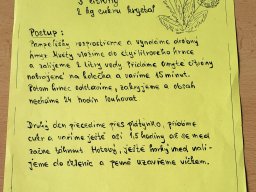 3 citróny
2 kg cukru kryštál
Postup:
Pampelišky rozprostrieme a vynáame drobný
hmyz. Kvety vložíme do čtyrlitrového hrnca
a zalijeme 2 litry vody. Pridáme umyté citróny
nakrojené na kolečka a varíme 15 minút.
Potom hrniec odstavíme, zakryjeme a obsah
necháme 24 hodín luhovať.
Druhý deň precedíme cez plátýnko, pridáme
cukr a varíme ještě asi 1,5 hodiny až se med
začne táhnuť. Hotový, ještě horký med nali-
jeme do sklenic a pevně uzavřeme víčkem.